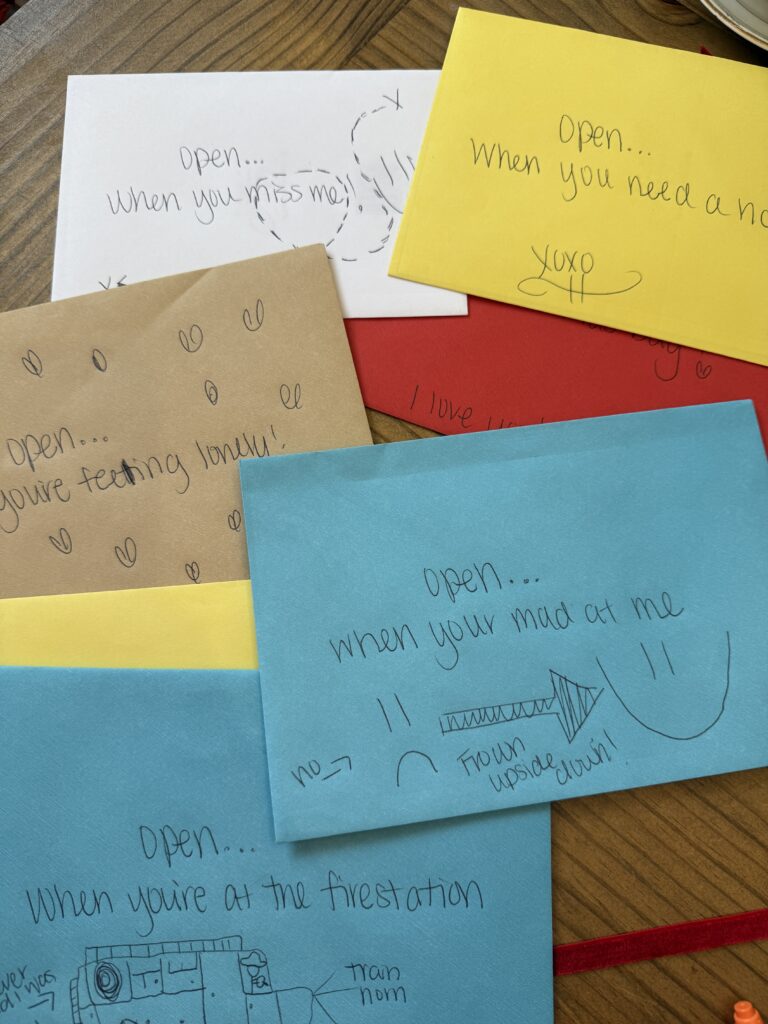 open...
when you miss me!
x
open...
when you need a
xoxo
I love
open...
you're feeling lonely!
open...
when your mad at me
no →
Frown
upside
down!
open...
When you're at the firestation
train
horn